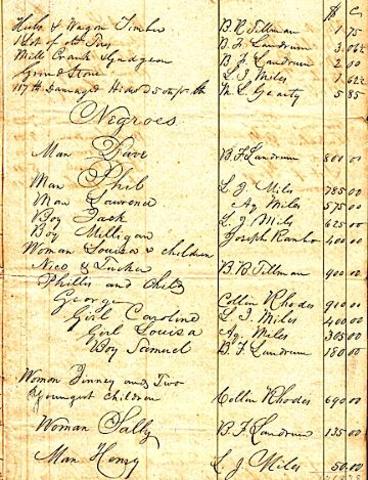 $ C
Hubs & Wagon Timber B R Tillman 1 75
1 Lot of Old B F Landrum 3.06¼
Mill Crank & Gudgeon B F Landrum 2 00
Grind Stone L J Miles 1.62½
117 lb Damaged Hides 5 cts pr lb M L Gearty 5 85
Negroes
Man Dave B F Landrum 800 00
Man Phil L J Miles 785 00
Man Lawrence Aq Miles 575 00
Boy Jack L J Miles 625 00
Boy Milligan Joseph 400 00
Woman Louisa & children
Nico & Tucker B R Tillman 900 00
Phillis and Child
George Collin Rhodes 910 00
Girl Caroline L J Miles 400 00
Girl Louisa Aq Miles 305 00
Boy Samuel B F Landrum 180 00
Woman Jinney and Two
Youngest Children Collin Rhodes 690 00
Woman Sally B F Landrum 135 00
Man Henry L J Miles 50.00